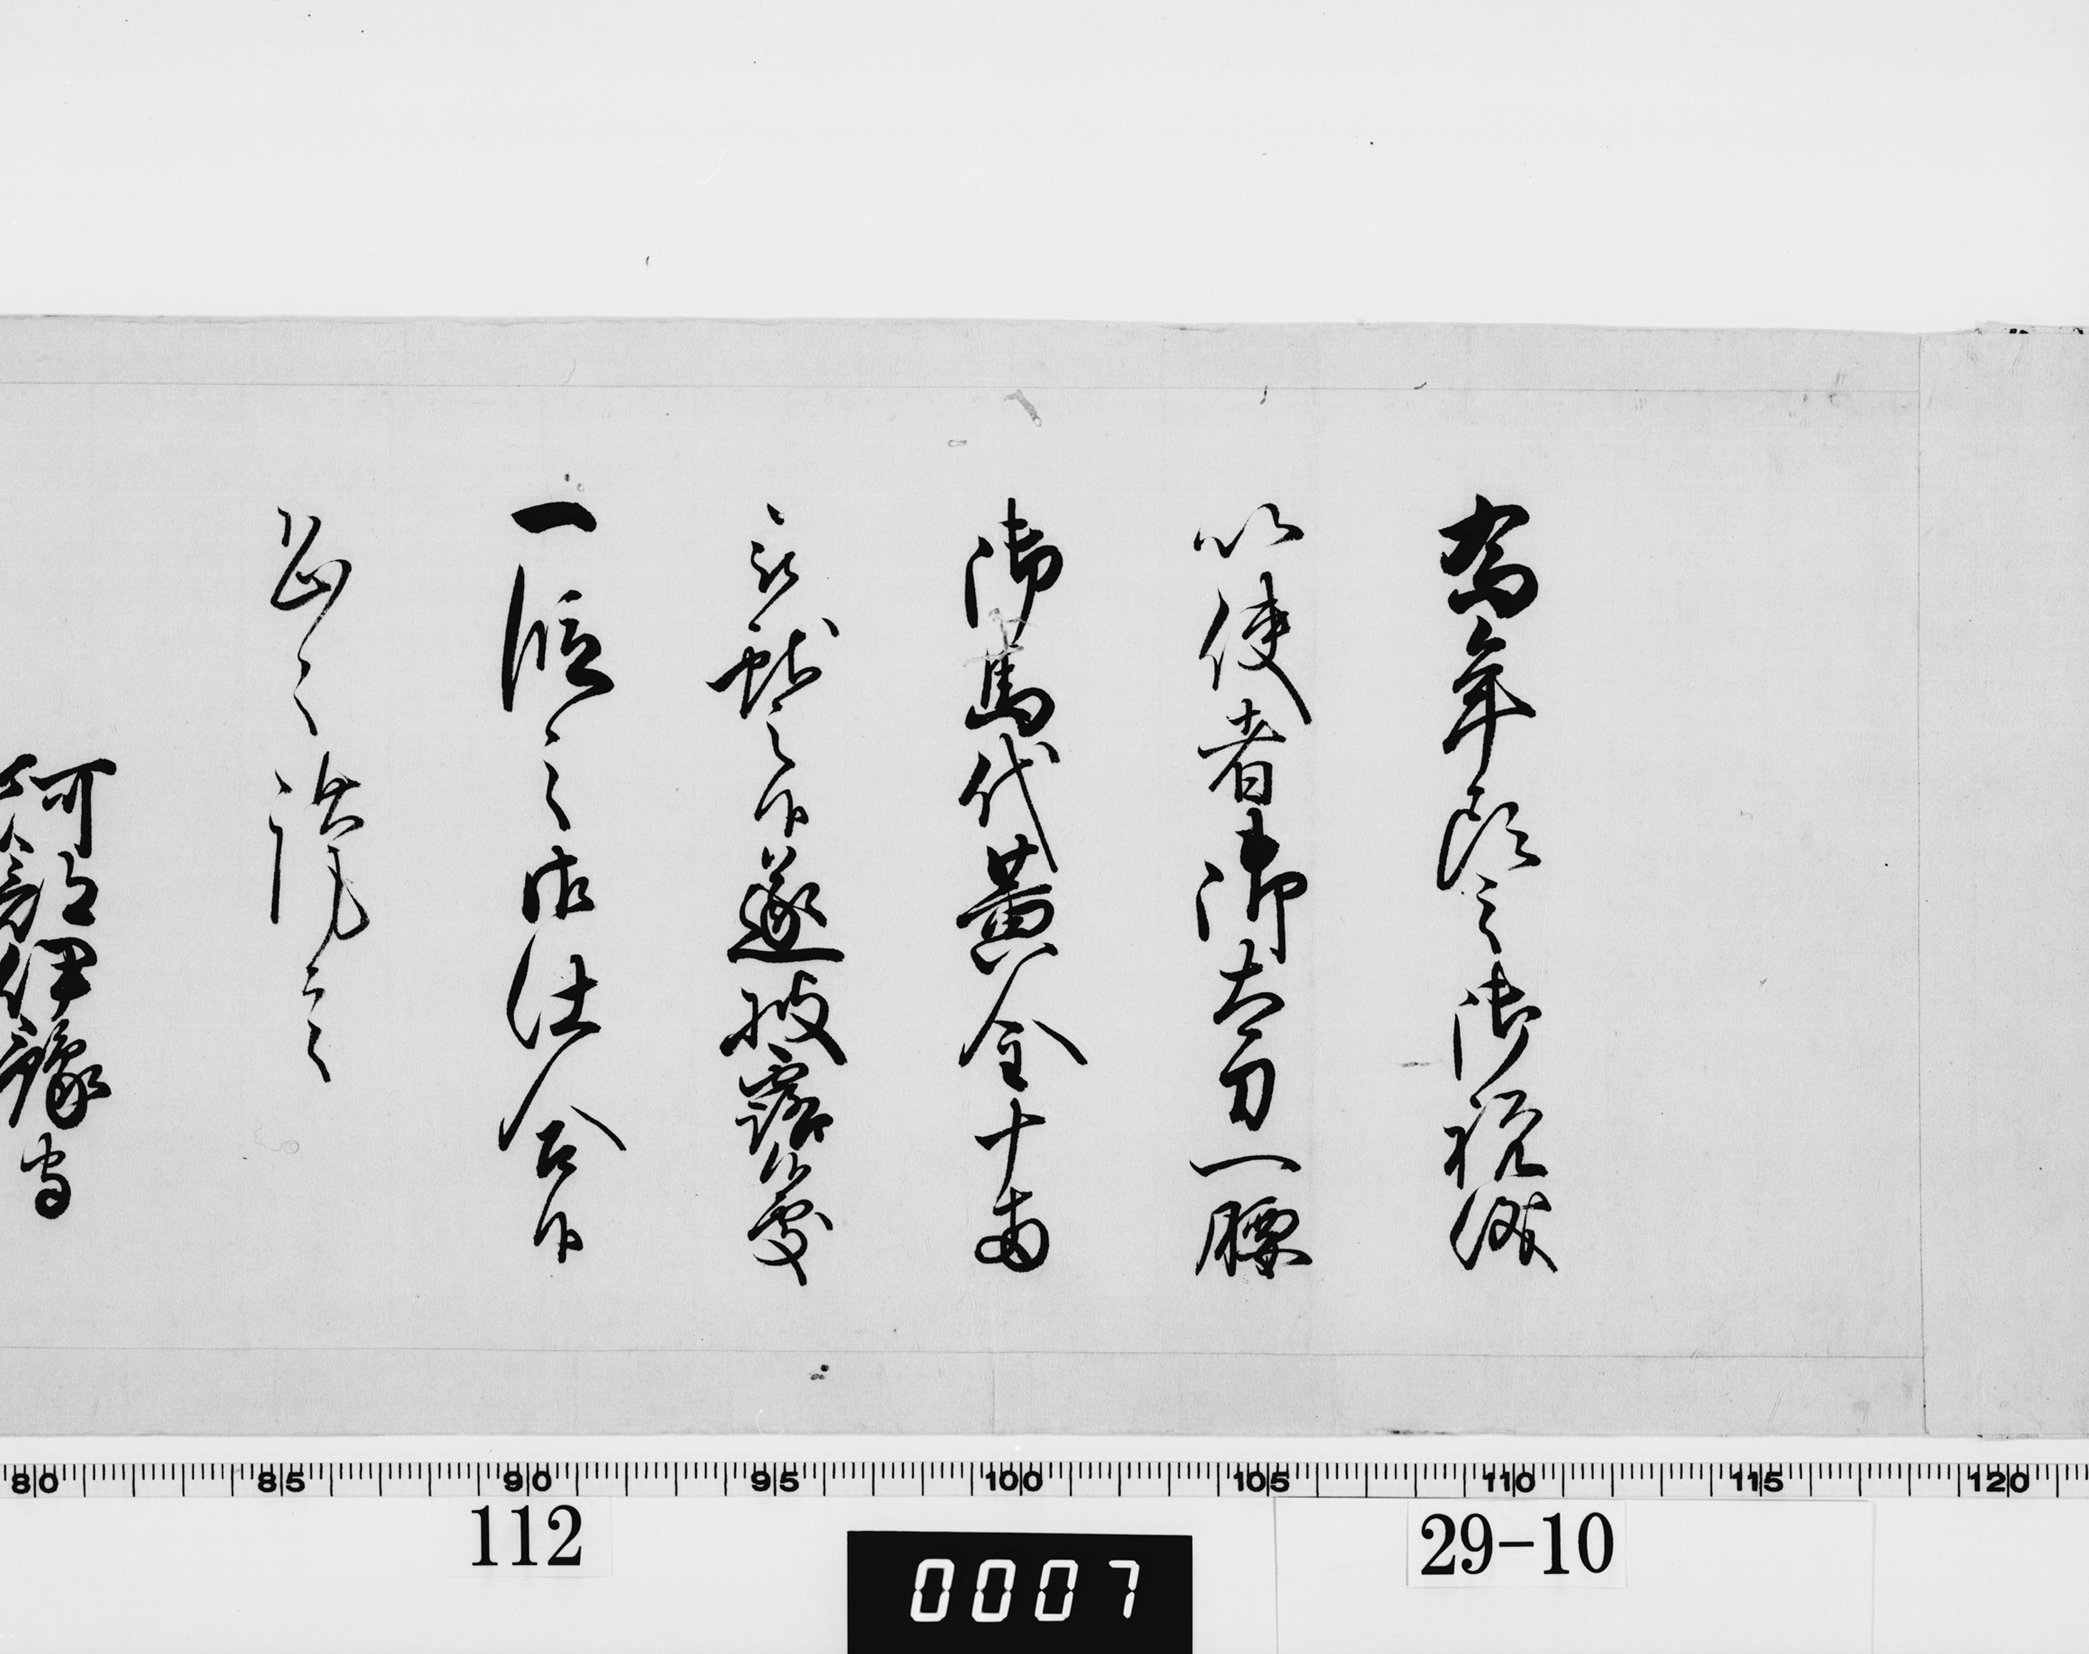 為年頭之御祝儀
以使者御太刀一腰
御馬代黄金十両
被献之候遂披露候處
一段之御仕合候
恐々謹言
阿部伊豫守
80 85 90 95 100 105 110 115 120
112
0007
29-10